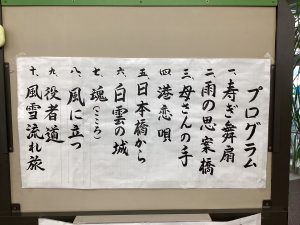 プログラム
一、寿ぎ舞扇
二、雨の思案橋
三、母さんの手
四、港恋唄
五、日本橋から
六、白雲の城
七、魂(こころ)
八、風に立つ
九、役者道
十、風雪流れ旅